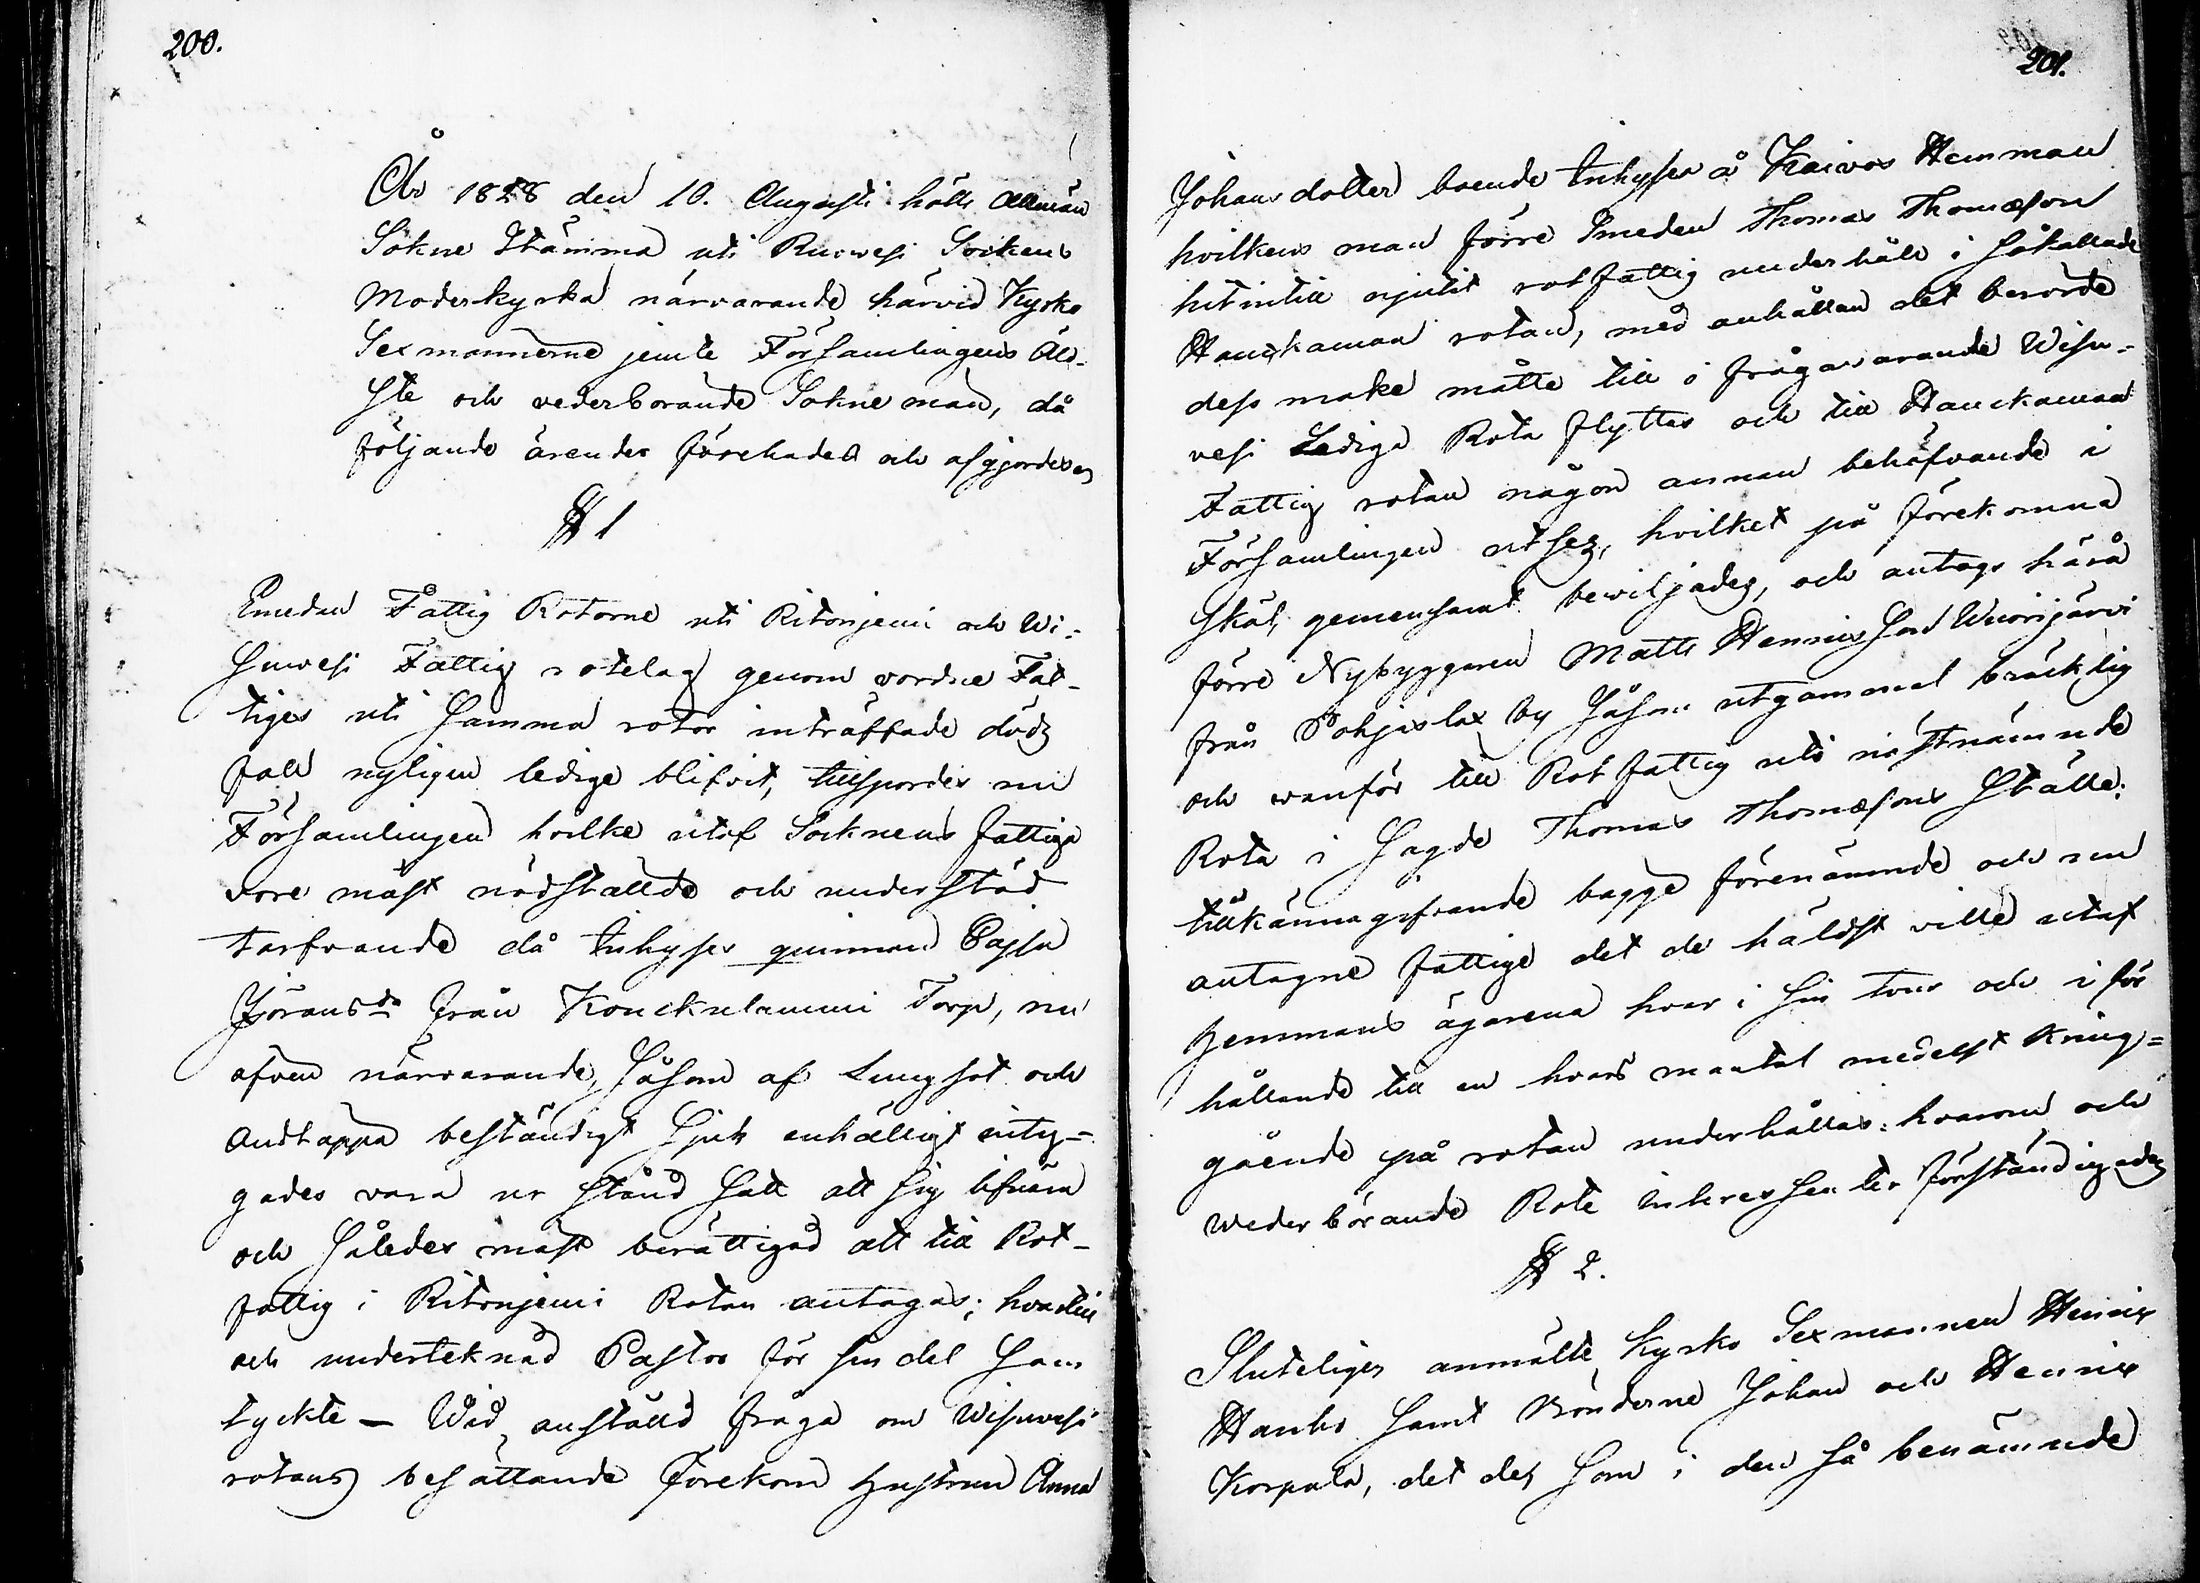 200.
År 1828 den 10. Augusti hölts Allmän
Sokne Stämma uti Ruowesi Sockens
Moderkyrka närvarande härvid Kyrko
Sexmännerne jemte Församlingens Äld-
ste och vederbörande Soknemän, då
följande ärender förehades och afgjordes
§ 1
Emedan Fattig Rotorne uti Ritoniemi och Wi-
suvesi Fattig rotelag genom vordne Fat-
tiges uti samma rotor inträffade döds
fall nyligen ledige blifvit, tillspordes nu
Församlingen hvilke utaf Socknens fattiga
vore mäst nödstälde och understöd
tarfvande då Inhyses quinnan Cajsa
Jöransdr från Konckulammi Torp, nu
äfven närvarande, såsom af Lungsot och
Andtäppa beständigt sjuk enhälligt inty-
gades vara ur stånd satt att sig lifnära
och således mäst berättigad att till Rot-
fattig i Ritoniemi Rotan antagas; hvartill
och undertecknad Pastor för sin del sam
tyckte — Wid anstäld fråga om Wisuvesi
rotans besättande förekom hustrun Anna
201.
Johansdotter boende Inhyses å Kaivos Hemman
hvilkens man förre Smeden Thomas Thomæson
hitintill njutit rotfattig underhåll i såkallade
Hauckamaa rotan, med anhållan det berörde
dess make måtte till i frågavarande Wisu-
vesi Lediga Rota flyttas och till Hauckamaa
Fattig rotan någon annan behöfvande i
Församlingen utses, hvilket på förekomna
skäl, gemensamt beviljades, och antogs härå
förre Nybyggaren Matts Henricsson Wuorijärvi
från Pohjaslax by såsom utgammal bräcklig
och vanför till Rotfattig uti nästnämnde
Rota i sagde Thomas Thomæsons ställe;
tillkännagifvande bägge förenämnde och nu
antagne fattige det de häldst ville utaf
hemmans ägarena hvar i sin tour och i för
hållande till en hvars mantal medelst kring-
gående på rotan underhållas: hvarom och
wederbörande Rote interessenter förständigades
§ 2.
Sluteligen anmälte Kyrko Sexmannen Henric
Hanho samt Bönderne Johan och Henric
Korpula, det de, som i den så benämnde